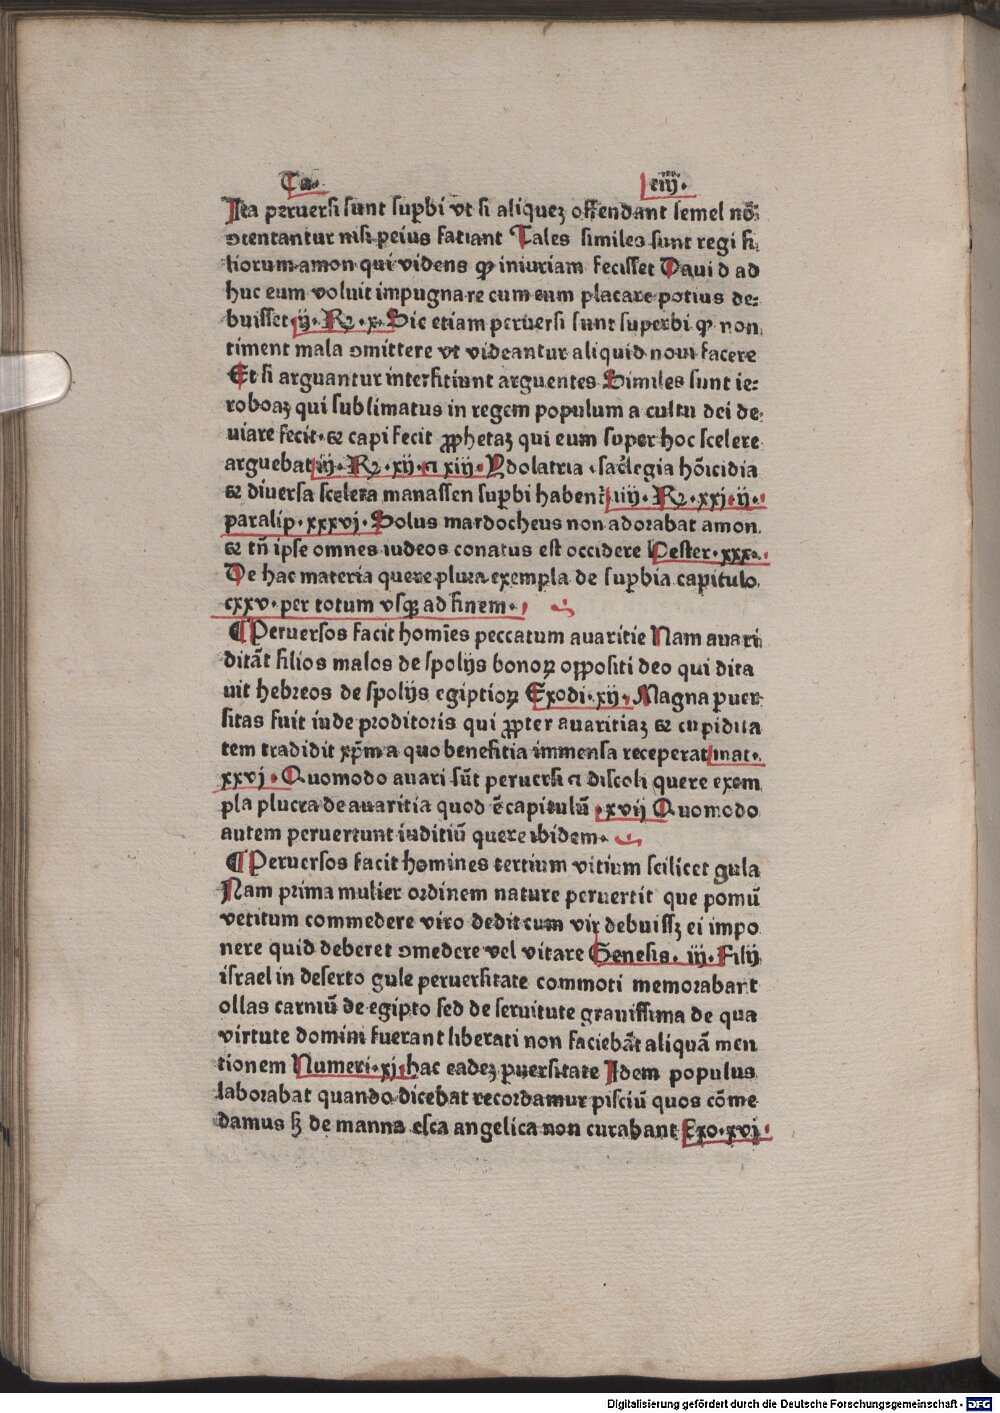 Ca. ciiij.
Ita peruersi sunt suꝑbi vt si aliquez offendant semel nō
ↄtentantur nisi peius faciant Tales similes sunt regi fi
liorum amon qui videns ꝙ iniuriam fecisset Dauid ad
huc eum voluit impugnare cum eum placare potius de:
buisset ij. Rꝫ. x. Sic etiam peruersi sunt superbi ꝙ non
timent mala ↄmittere vt videantur aliquid noui facere
Et si arguantur interfitiunt arguentes Similes sunt ie:
roboaz qui sublimatus in regem populum a cultu dei de:
uiare fecit. ⁊ capi fecit ꝓphetaz qui eum super hoc scelere
arguebat iij. Rꝫ. xij. ⁊ xiij. Ydolatria sac̄legia hōicidia
⁊ diuersa scelera manassen suꝑbi habent iiij. Rꝫ. xxj. ij.
paralip. xxxvj. Solus mardocheus non adorabat amon
⁊ tn̄ ipse omnes iudeos conatus est occidere hester. xxx.
De hac materia quere plura exempla de suꝑbia capitulo
cxxv. per totum vsqꝫ ad finem.
¶ Peruersos facit homīes peccatum auaritie Nam auari
ditāt filios malos de spolijs bonoꝝ oppositi deo qui dita
uit hebreos de spolijs egiptioꝝ Exodi. xij. Magna ꝑuer
sitas fuit iude proditoris qui ꝓpter auaritiaz ⁊ cupidita
tem tradidit xp̄m a quo benefitia immensa receperat mat.
xxvj. Quomodo auari sūt peruersi ⁊ discoli quere exem
pla plucra de auaritia quod ē capitulū. xvij Quomodo
autem peruertunt iuditiū quere ibidem.
¶ Peruersos facit homines tertium vitium scilicet gula
Nam prima mulier ordinem nature peruertit que pomū
vetitum commedere viro dedit cum vir debuissꝫ ei impo
nere quid deberet ↄmedere vel vitare Genesis. iij. Filij
israel in deserto gule peruersitate commoti memorabant
ollas carniū de egipto sed de seruitute grauissima de qua
virtute domini fuerant liberati non faciebāt aliquā men
tionem Numeri. xj. hac eadez ꝑuersitate Idem populus
laborabat quando dicebat recordamur pisciū quos cōme
damus sꝫ de manna esca angelica non curabant Exo. xvj
Digitalisierung gefördert durch die Deutsche Forschungsgemeinschaft - DFG